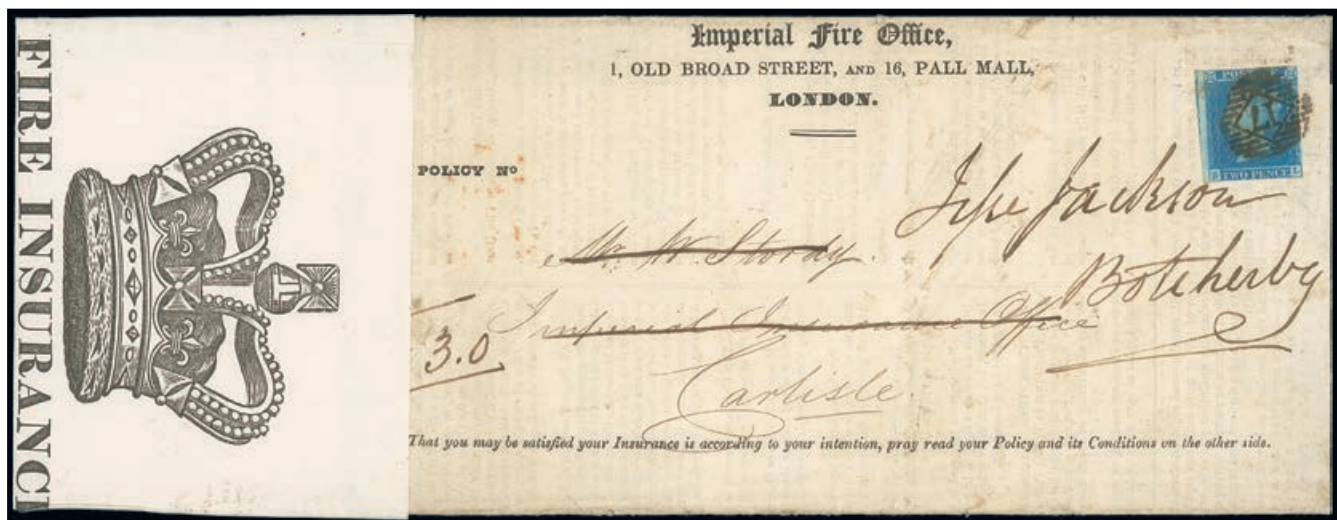 FIRE INSURANC
Imperial Fire Office,
1, OLD BROAD STREET, AND 16, PALL MALL,
LONDON.
POLICY Nº
Jackson
Mr. W. Stordy.
Botcherby
Imperial Insurance Office
3.0
Carlisle.
That you may be satisfied your Insurance is according to your intention, pray read your Policy and its Conditions on the other side.
TWO PENCE
L